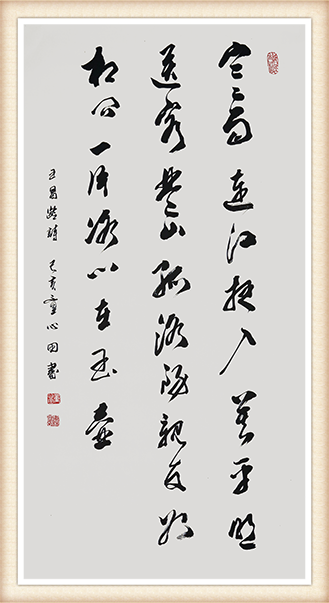 寒雨連江夜入吳平明
送客楚山孤洛陽親友如
相問一片冰心在玉壺
王昌齡詩 己亥童心田書